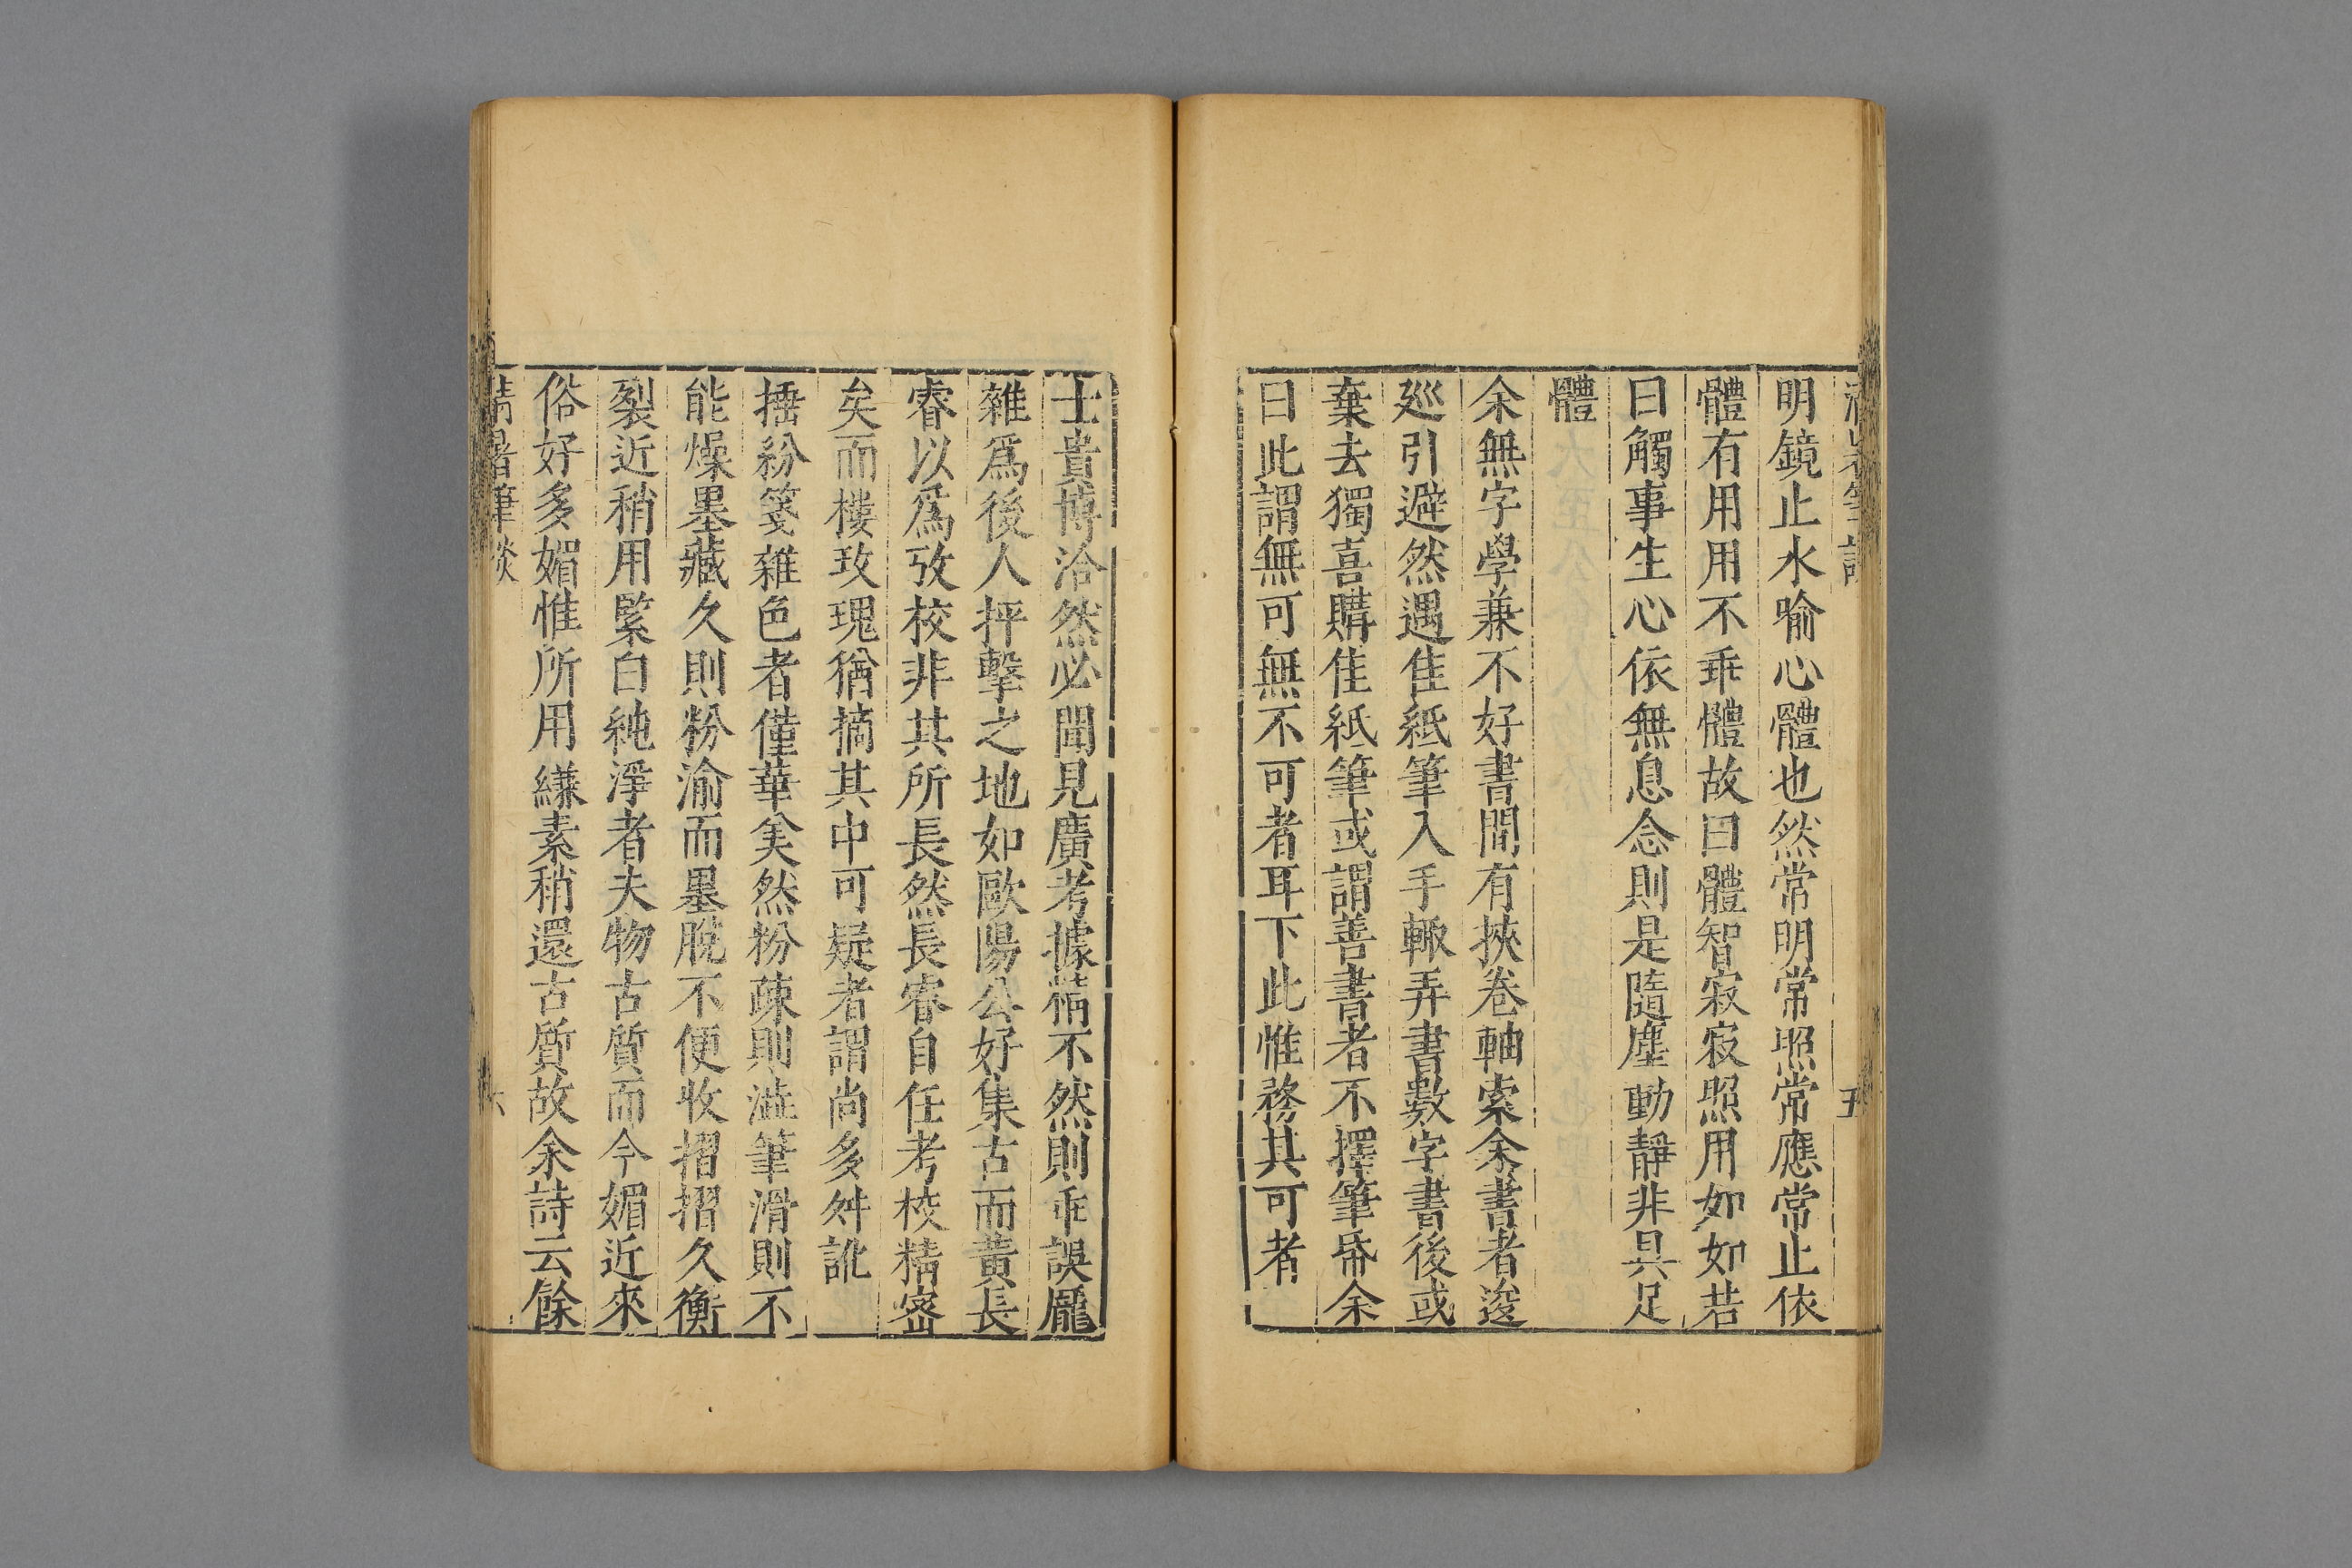 明鏡止水喻心體也然常明常照常應常止依
體有用用不乖體故曰體智寂寂照用如如若
曰觸事生心依無息念則是隨塵動靜非具足
體
余無字學兼不好書間有挾卷軸索余書者逡
廵引避然遇佳紙筆入手輙弄書數字書後或
棄去獨喜購佳紙筆或謂善書者不擇筆帋余
曰此謂無可無不可者耳下此惟務其可者
士貴博洽然必聞見廣考據精不然則乖誤龐
雜爲後人抨擊之地如歐陽公好集古而黃長
睿以爲攷校非其所長然長睿自任考校精密
矣而樓攻瑰猶摘其中可疑者謂尚多舛訛
搥紛箋雜色者僅華矣然粉疎則澁筆滑則不
能燥墨藏久則粉渝而墨脫不便收摺摺久衡
裂近稍用䌤白純淨者夫物古質而今媚近來
俗好多媚惟所用縑素稍還古質故余詩云餘
清暑筆談